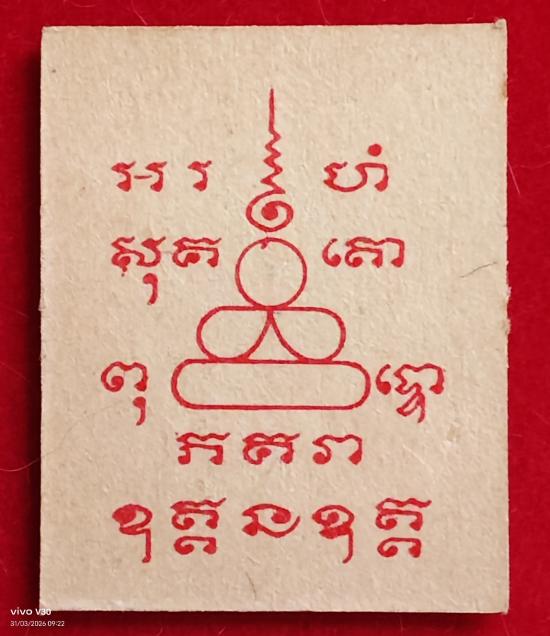 អ រ ហំ
សុគ តោ
ពុ ទ្ធោ
ភគវា
vivo V30
31/03/2026 09:22